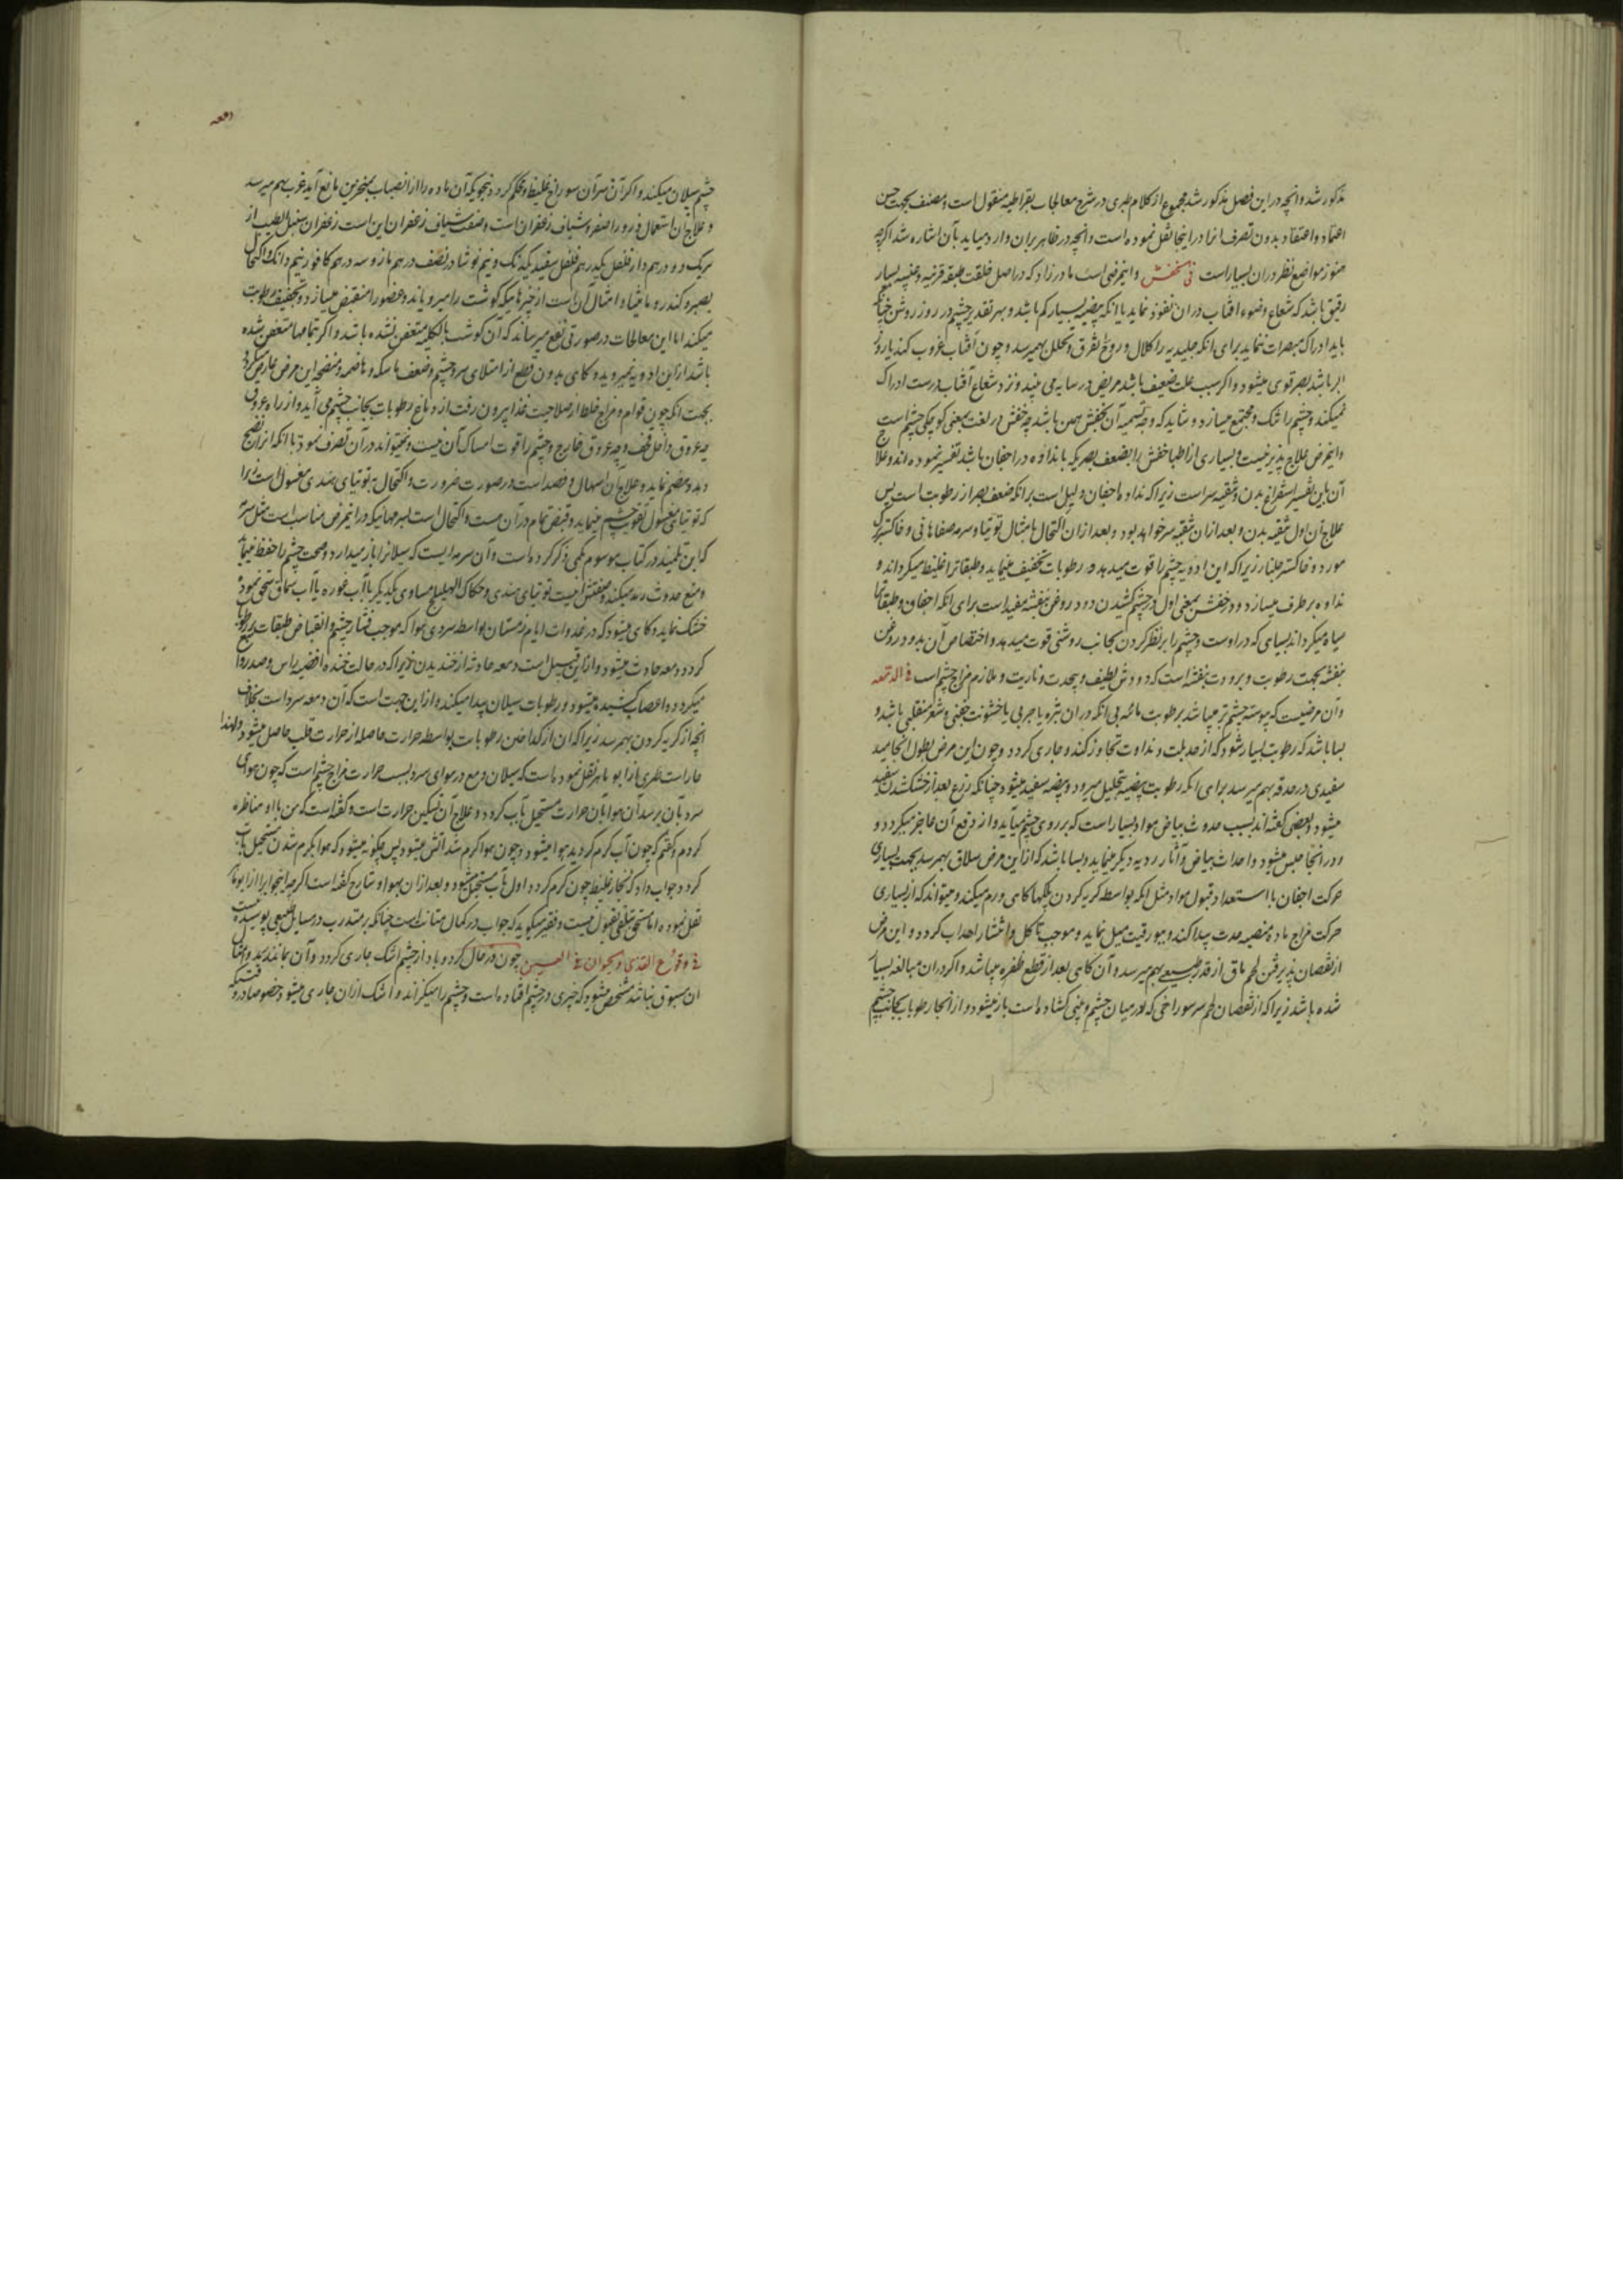 مذکور شد و انچه در این فصل مذکور شد مجموع از کلام طبری در شرح معالجات بقراطیه منقول است و مصنف بجهت حسن
اعتماد و اعتقاد بدون تصرف انرا در اینجا نقل نموده است و انچه در ظاهر بران وارد میاید بآن اشاره شد اکرچه
هنوز مواضع نظر دران بسیار است فی الخفش و اینمرضی است مادرزاد که در اصل خلقت طبقه قرنیه و عنبیه بسیار
رقیق باشد که شعاع و ضوء افتاب دران نفوذ نماید یا انکه بیضیه بسیار کم باشد و بهر تقدیر چشم در روز روشن چنانکه
باید ادراک مبصرات ننماید برای انکه جلیدیه را کلال و روح را تفرق و تحلل بهم میرسد و چون آفتاب غروب کند یا روز
ابر باشد بصر قوی میشود و اکر سبب علت ضعیف باشد مریض در سایه می بیند و نزد شعاع آفتاب درست ادراک
نمیکند و چشم را تنک و مجتمع میسازد و شاید که وجه تسمیه آن بخفش همین باشد چه خفش در لغت بمعنی کوچکی چشم است
و اینمرض علاج پذیر نیست و بسیاری از اطبا خفش را بضعف بصر یکه با نداوه در اجفان باشد تفسیر نموده اند و علاج
آن باین تفسیر استفراغ بدن و تنقیه سر است زیرا که نداوه اجفان دلیل است بر انکه ضعف بصر از رطوبت است پس
علاج آن اول تنقیه بدن و بعد ازان تنقیه سر خواهد بود و بعد ازان اکتحال بامثال توتیا و سرمه صفاهانی و خاکستر برک
مورد و خاکستر جلنار زیرا که این ادویه چشم را قوت میدهد و رطوبات تخفیف مینماید و طبقات را غلیظ میکرداند و
نداوه بر طرف میسازد و در خفش بمعنی اول در چشم کشیدن دود روغن بنفشه مفید است برای انکه اجفان و طبقات را
سیاه میکرداند بسیاهی که در اوست و چشم را بر نظر کردن بجانب روشنی قوت میدهد و اختصاص آن بدود روغن
بنفشه بجهت رطوبت و برودت بنفشه است که دودش لطیف و بیحدت و ناریت و ملازم مزاج چشم است فی الدمعه
و آن مرضیست که پیوسته چشم تر میباشد برطوبت مائیه بی انکه دران بثره یا جربی یا خشونت جفنی و شعر منقلبی باشد و
بسا باشد که رطوبت بسیار شود که از حد بلت و نداوت تجاوز کند و جاری کردد و چون این مرض بطول انجامید
سفیدی در حدقه بهم میرسد برای انکه رطوبت بیضیه بتحلیل میرود و بیضیه سفید میشود چنانکه زرع بعد از خشک شدن سفید
میشود و بعضی کفته اند بسبب حدوث بیاض مواد بسیار است که بر روی چشم میآید و از دفع آن عاجز میکردد و
و در انجا محتبس میشود و احداث بیاض و آثار ردیه دیکر مینماید و بسا باشد که ازاین مرض سلاق بهم رسد بجهت بسیاری
حرکت اجفان با استعداد قبول مواد مثل انکه بواسطه کریه کردن پلکها کاهی ورم میکند و میتواند که از بسیاری
حرکت مزاج ماده منصبه حدت پیدا کند و ببورقیت میل نماید و موجب تاکل و انتشار اهداب کردد و این مرض
از نقصان پذیرفتن لحم ماق از قدر طبیعی بهم میرسد و آن کاهی بعد از قطع ظفره میباشد و اکر دران مبالغه بسیار
شده باشد زیرا که از نقصان لحم سر سوراخی که در میان چشم و بینی کشاده است باز میشود و از انجا رطوبات بجانب چشم
دمعه
چشم سیلان میکند و اکر آن سر آن سوراخ غلیظ و محکم کردد بنحویکه آن ماده را از انصباب بمنخرین مانع آید غرب بهم میرسد
و علاج آن استعمال ذرور اصفر و شیاف زعفران است و صفت شیاف زعفران این است زعفران سنبل الطیب از
هریک دو درهم دارفلفل یکدرهم فلفل سفید یکدانک و نیم نوشادر نصف درهم مازو سه درهم کافور نیم دانک و اکتحال
بصبر و کندر و مامیثا و امثال ان است از چیزهائیکه کوشت را میرویاند و عضو را منقبض میسازد و تجفیف رطوبت
میکند اما این معالجات در صورتی نفع میرساند که آن کوشت بالکلیه متعفن نشده باشد و اکر بتمامها متعفن شده
باشد ازاین ادویه نمیروید و کاهی بدون قطع از امتلای سر و چشم و ضعف ماسکه و هاضمه و منضجه این مرض عارض میکردد
بجهت انکه چون قوام و مزاج خلط از صلاحیت غذا بیرون رفت از دماغ رطوبات بجانب چشم می آید و از راه عروق
چه عروق داخل قحف و چه عروق خارج و چشم را قوت امساک آن نیست و نمیتواند در آن تصرف نمود تا انکه انرا نضج
دهد و هضم نماید و علاج آن اسهال و فصد است در صورت ضرورت و اکتحال به توتیای هندی مغسول است زیرا
که توتیای مغسول تقویت چشم مینماید و قبض تمام در آن هست و اکتحال است بسرمهائیکه در اینمرض مناسب است مثل سرمه
که ابن تلمیذ در کتاب موسوم بملکی ذکر کرده است و آن سرمه ایست که سیلان را باز میدارد و صحت چشم را حفظ مینماید
و منع حدوث رمد میکند و صفتش اینست توتیای هندی و حکاک الهلیلج مساوی یکدیکر با آب غوره یا آب سماق سحق نموده
خشک نماید و کاهی میشود که در غدوات ایام زمستان بواسطه سردی هوا که موجب فشار چشم و انقباض طبقات رطوبات
کردد دمعه حادث میشود و ازاین قبیل است دمعه حادثه از خندیدن زیرا که در حالت خنده اغشیه راس و صدر
میکردد و اعصاب کشیده میشود و رطوبات سیلان پیدا میکند و ازاین جهت است که آن دمعه سرد است بخلاف
انچه از کریه کردن بهم رسد زیرا که ان از کداختن رطوبات بواسطه حرارت حاصله از حرارت قلب حاصل میشود و لهذا
حار است طبری از ابو ماهر نقل نموده است که سیلان دمع در هوای سرد بسبب حرارت مزاج چشم است که چون هوای
سرد بان برسد آن هوا بآن حرارت مستحیل بآب کردد و علاج آن تسکین حرارت است و کفته است که من با او مناظره
کردم و کفتم که چون آب کرم کردید هوا میشود و چون هوا کرم شد آتش میشود پس چکونه میشود که هوا بکرم شدن مستحیل بآب
کردد جواب داد که بخار غلیظ چون کرم کردد اول بآب مستحیل میشود و بعد ازان بهوا و شارح کفته است اکرچه اینجواب را از ابو ماهر
نقل نموده اما مستحق تلقی بقبول نیست و فقیر میکوید که جواب در کمال متانت است چنانکه بر متدرب در مسایل طبیعی پوشیده نیست
فی وقوع القذی و الحیوان فی العین چون در حال کردوباد از چشم اشک جاری کردد و آن بمانند و امثال
ان مسبوق نباشد مشخص میشود که چیزی در چشم افتاده است و چشم را میکزاند و اشک ازان جاری میشود خصوصا در وقتیکه